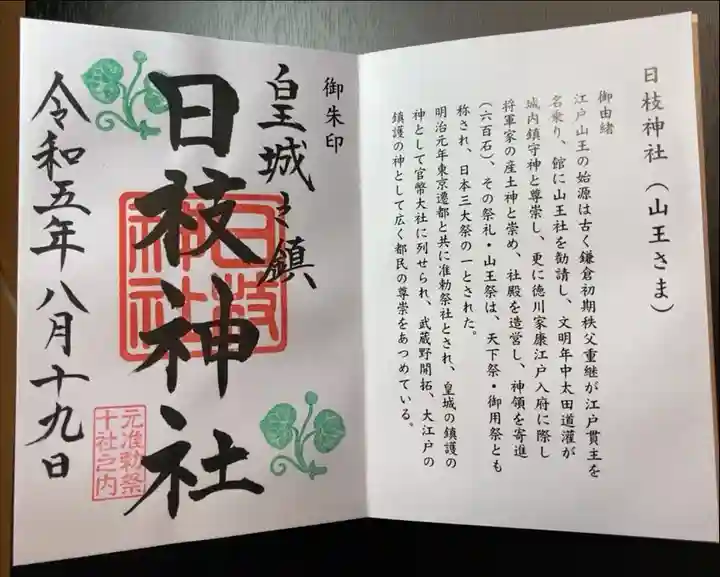 日枝神社(山王さま)
御由緒
江戸山王の始源は古く鎌倉初期秩父重継が江戸貫主を
名乗り、館に山王社を勧請し、文明年中太田道灌が
城内鎮守神と尊崇し、更に徳川家康江戸入府に際し
将軍家の産土神と崇め、社殿を造営し、神領を寄進
(六百石)、その祭礼・山王祭は、天下祭・御用祭とも
称され、日本三大祭の一とされた。
明治元年東京遷都と共に准勅祭社とされ、皇城の鎮護の
神として官幣大社に列せられ、武蔵野開拓、大江戸の
鎮護の神として広く都民の尊崇をあつめている。
御朱印
皇城之鎮
日枝神社
日枝
神社
令和五年八月十九日
元准勅祭
十社之内